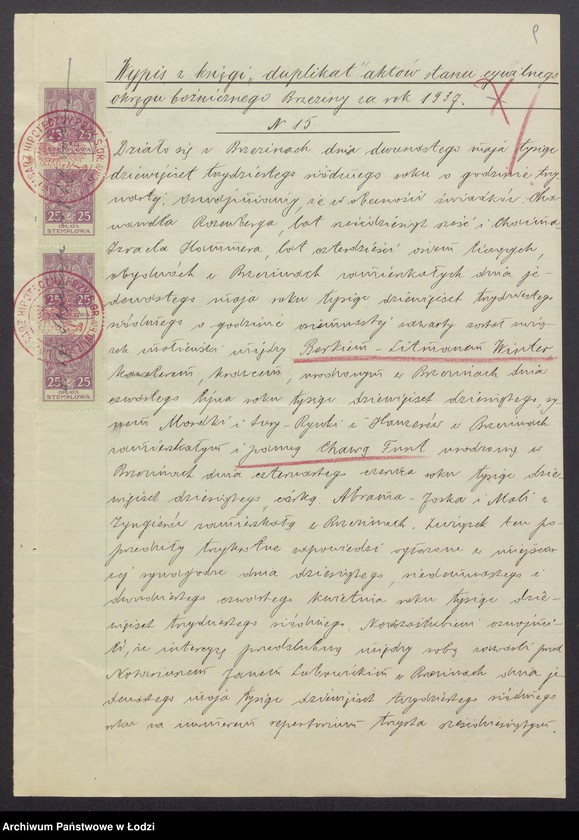 Wypis z księgi „duplikat” aktów stanu cywilnego
okręgu bożniczego Brzeziny za rok 1937.
N 15
Działo się w Brzezinach dnia dwunastego maja tysiąc
dziewięćset trzydziestego siódmego roku o godzinie czwartej
Oznajmiamy, że w obecności świadków, Cha
Rozenberga, lat sześćdziesiąt sześć i Chaima
Izraela Hammera, lat czterdzieści osiem liczących,
obydwóch w Brzezinach zamieszkałych dnia je-
denastego maja roku tysiąc dziewięćset trzydziestego
siódmego o godzinie osiemnastej zawarty został zwią-
zek małżeński między Berkiem-Litmanem Winter
kawalerem, krawcem, urodzonym w Brzezinach dnia
czwartego lipca roku tysiąc dziewięćset dziesiątego, sy-
nem Mordki i Sury-Rywki z w Brzezinach
zamieszkałym i panną Chawą Funt urodzoną w
Brzezinach dnia czternastego czerwca roku tysiąc dzie-
więćset dziesiątego, córką Abrama-Joska i Mali z
Zyngierów zamieszkałą w Brzezinach. Związek ten po-
przedziły trzykrotne zapowiedzi ogłoszone w miejsco-
wej synagodze dnia dziesiątego, siedemnastego i
dwudziestego czwartego kwietnia roku tysiąc dzie-
więćset trzydziestego siódmego. Nowozaślubieni oznajmi-
li, że intercyzę przedślubną między sobą zawarli przed
Notariuszem Janem w Brzezinach dnia je-
denastego maja tysiąc dziewięćset trzydziestego siódmego
roku za numerem repertorium trzysta sześćdziesiątym.
25 25
OPŁATA
STEMPLOWA
25 25
OPŁATA
STEMPLOWA
25 25
25 25
OPŁATA
STEMPLOWA
Archiwum Państwowe w Łodzi